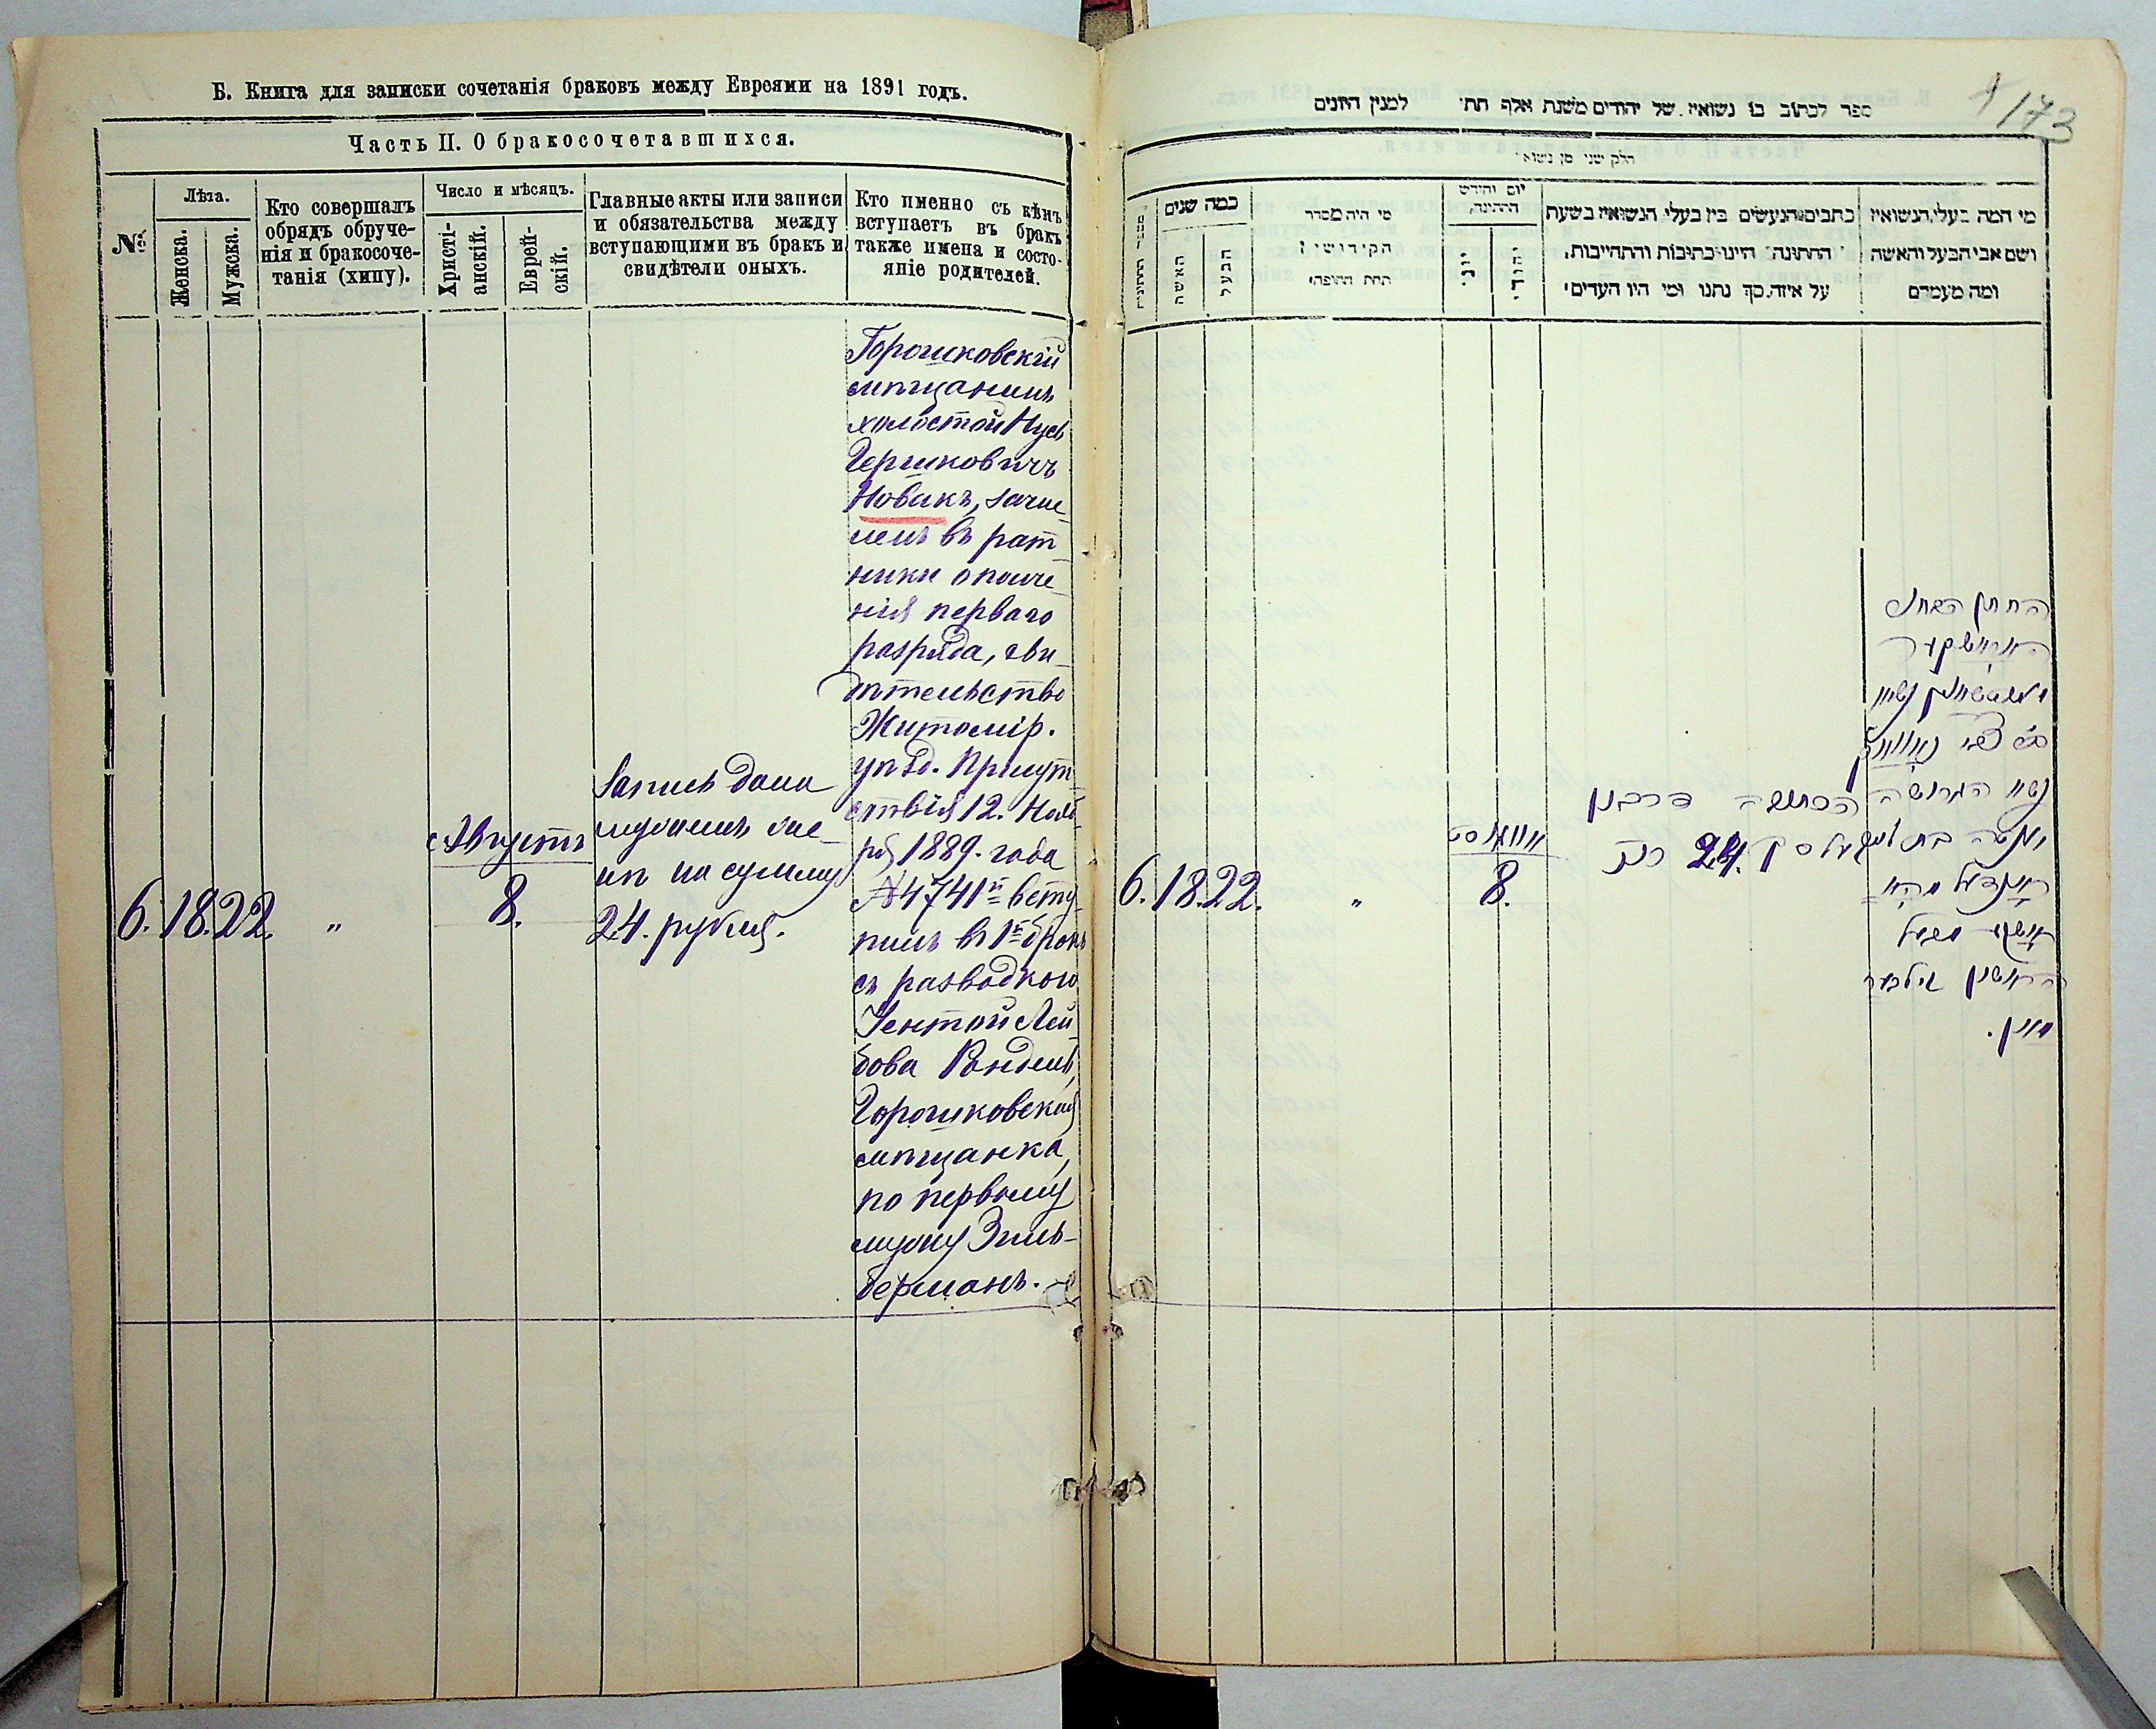 Б. Книга для записки сочетанія браковъ между Евреями на 1891 годъ.
Часть II. О бракосочетавшихся.
№
Лѣта.
Женска.
Мужска.
Кто совершалъ
обрядъ обруче-
нія и бракосоче-
танія (хипу).
Число и мѣсяцъ.
Христі-
анскій.
Еврей-
скій.
Главные акты или записи
и обязательства между
вступающими въ бракъ и
свидѣтели оныхъ.
Кто именно съ кѣмъ
вступаетъ въ бракъ
также имена и состо-
яніе родителей.
6. 18. 22. „
Августъ
8.
Запись дана
мужемъ же-
нѣ на сумму
24. рубля.
Горошковскій
мѣщанинъ
холостой Нусь
Гершковичъ
Новакъ, зачис
ленъ въ рат
ники ополче
нія перваго
разряда, сви
дѣтельство
Житомір.
уѣзд. Присут
ствія 12. Нояб
ря 1889. года
№ 4741й всту
пилъ въ 1й бракъ
съ разводкою
Ментой Лей
бова Рандель,
Горошковская
мѣщанка,
по первому
мужу Зиль-
берманъ.
173
ספר לכתוב בו נשואין של יהודים משנת אלף תת׳ למנין היונים
חלק שני מן נשואי׳
מספר החתונות
כמה שנים
האשה
הבעל
מי היה מסדר
הקידושין
תחת החופה׳
יום וחודש
החתונה,
יוני׳
יהודי׳
כתבים הנעשים בין בעלי הנשואין בשעת
החתונה׳ היינו כתיבות והתחייבות,
על איזה סך נתנו ומי היו העדים׳
מי המה בעלי הנשואין
ושם אבי הבעל והאשה
ומה מעמדם
6. 18. 22. „
אווגוסט
8.
הכתובה כדרבנן
24. רוכ
החתן הבחור
נשוי הגרושה